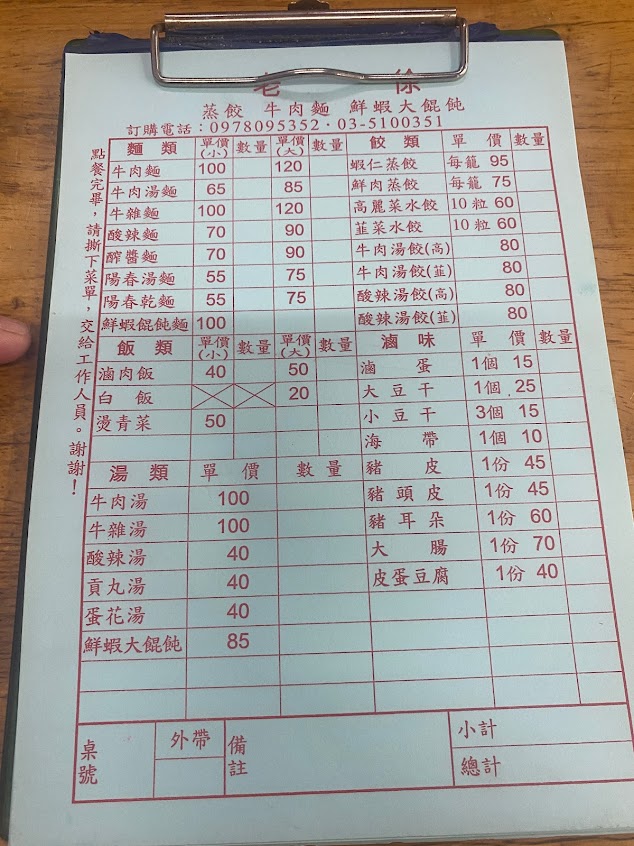 老 徐
蒸餃 牛肉麵 鮮蝦大餛飩
訂購電話：0978095352·03-5100351
點餐完畢，請撕下菜單，交給工作人員。謝謝！
麵類 單價(小) 數量 單價(大) 數量
牛肉麵 100 120
牛肉湯麵 65 85
牛雜麵 100 120
酸辣麵 70 90
酢醬麵 70 90
陽春湯麵 55 75
陽春乾麵 55 75
鮮蝦餛飩麵 100
飯類 單價(小) 數量 單價(大) 數量
滷肉飯 40 50
白飯 20
燙青菜 50
湯類 單價 數量
牛肉湯 100
牛雜湯 100
酸辣湯 40
貢丸湯 40
蛋花湯 40
鮮蝦大餛飩 85
餃類 單價 數量
蝦仁蒸餃 每籠 95
鮮肉蒸餃 每籠 75
高麗菜水餃 10粒 60
韮菜水餃 10粒 60
牛肉湯餃(高) 80
牛肉湯餃(韮) 80
酸辣湯餃(高) 80
酸辣湯餃(韮) 80
滷味 單價 數量
滷蛋 1個 15
大豆干 1個 25
小豆干 3個 15
海帶 1個 10
豬皮 1份 45
豬頭皮 1份 45
豬耳朵 1份 60
大腸 1份 70
皮蛋豆腐 1份 40
桌號 外帶 備註 小計
總計